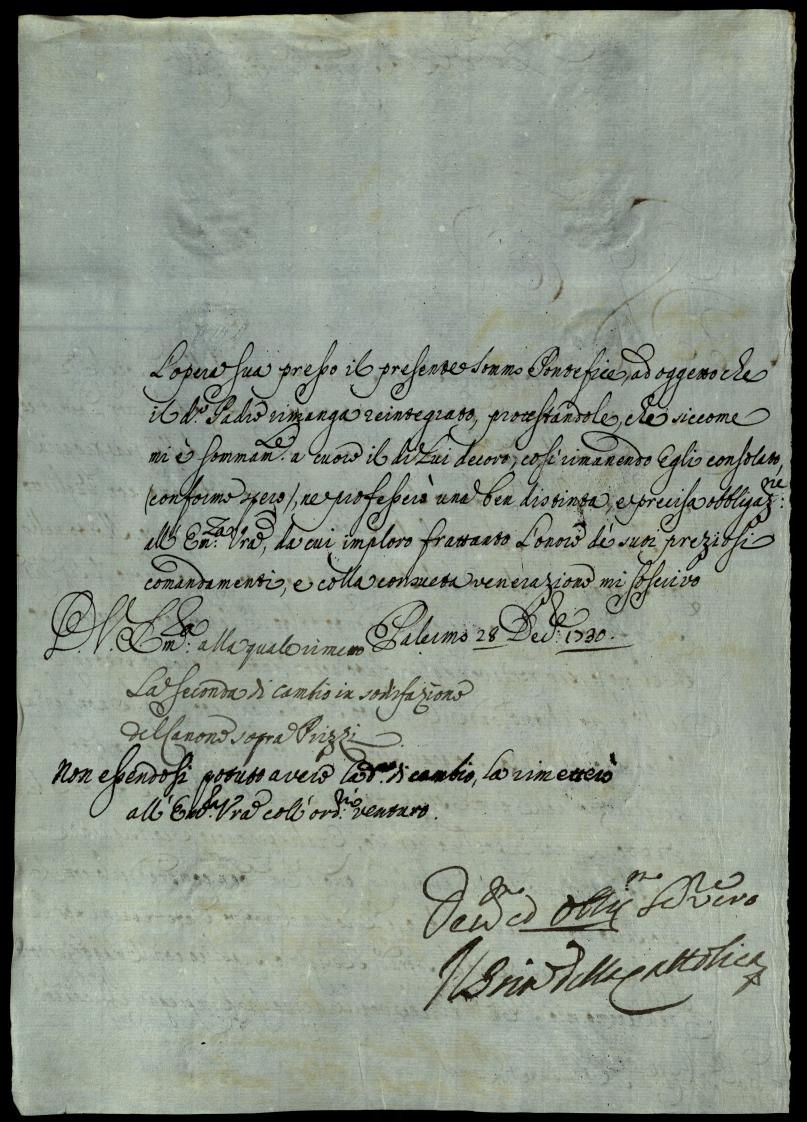 L'opera sua presso il presente Sommo Pontefice, ad oggetto che
il d.º Padre rimanga reintegrato, protestandole, che siccome
mi è sommam.e a cuore il di Lui decoro, così rimanendo Egli consolato,
(conforme spero), ne professerò una ben distinta, e precisa obbligaz.ne
all' Em.za Vra, da cui imploro frattanto l'onore de' suoi preziosi
comandamenti, e colla consueta venerazione mi soscrivo
D. V. Em.a alla quale rimetto Palermo 28 Dec.e 1730.
La seconda di cambio in sodisfazione
del Canone sopra Prizzi
Non essendosi potuto avere la d.a di cambio, la rimetterò
all' Em.za Vra coll' ord.rio venturo.
Dev.mo ed Obblig.mo Ser.re vero
Il Prin. della Cattolica